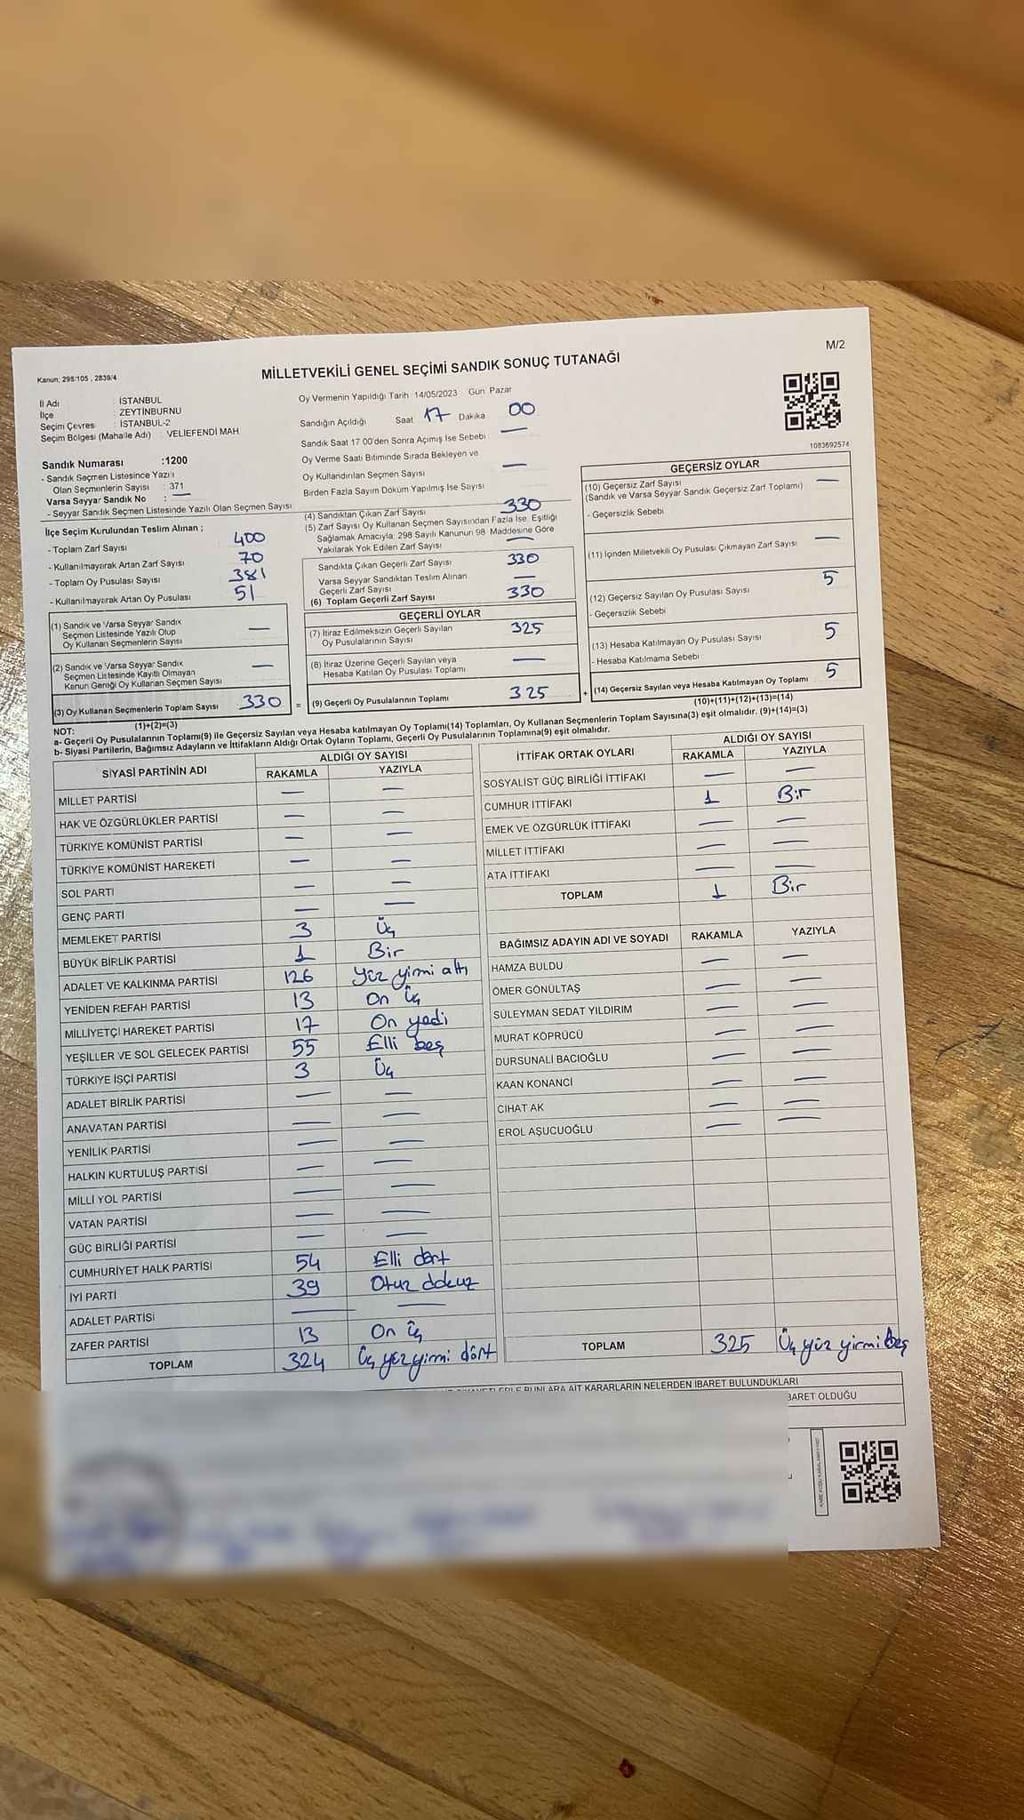 M/2
Kanun; 298/105 , 2839/4
MİLLETVEKİLİ GENEL SEÇİMİ SANDIK SONUÇ TUTANAĞI
İl Adı : İSTANBUL
İlçe : ZEYTİNBURNU
Seçim Çevresi : İSTANBUL-2
Seçim Bölgesi (Mahalle Adı) : VELİEFENDİ MAH
Oy Vermenin Yapıldığı Tarih 14/05/2023 Gün Pazar
Sandığın Açıldığı Saat 17 Dakika 00
Sandık Saat 17 00'den Sonra Açımış İse Sebebi —
Oy Verme Saati Bitiminde Sırada Bekleyen ve
Oy Kullandırılan Seçmen Sayısı —
Birden Fazla Sayım Döküm Yapılmış İse Sayısı
1083692574
Sandık Numarası :1200
- Sandık Seçmen Listesince Yazılı
Olan Seçmenlerin Sayısı : 371
Varsa Seyyar Sandık No : —
- Seyyar Sandık Seçmen Listesinde Yazılı Olan Seçmen Sayısı
İlçe Seçim Kurulundan Teslim Alınan ;
- Toplam Zarf Sayısı 400
- Kullanılmayarak Artan Zarf Sayısı 70
- Toplam Oy Pusulası Sayısı 381
- Kullanılmayarak Artan Oy Pusulası 51
(1) Sandık ve Varsa Seyyar Sandık
Seçmen Listesinde Yazılı Olup
Oy Kullanan Seçmenlerin Sayısı —
(2) Sandık ve Varsa Seyyar Sandık
Seçmen Listesinde Kayıtlı Olmayan
Kanun Gereği Oy Kullanan Seçmen Sayısı —
(3) Oy Kullanan Seçmenlerin Toplam Sayısı 330
(1)+(2)=(3)
(4) Sandıktan Çıkan Zarf Sayısı 330
(5) Zarf Sayısı Oy Kullanan Seçmen Sayısından Fazla İse, Eşitliği
Sağlamak Amacıyla; 298 Sayılı Kanunun 98. Maddesine Göre
Yakılarak Yok Edilen Zarf Sayısı —
Sandıkta Çıkan Geçerli Zarf Sayısı 330
Varsa Seyyar Sandıktan Teslim Alınan
Geçerli Zarf Sayısı —
(6) Toplam Geçerli Zarf Sayısı 330
GEÇERLİ OYLAR
(7) İtiraz Edilmeksizin Geçerli Sayılan
Oy Pusulalarının Sayısı 325
(8) İtiraz Üzerine Geçerli Sayılan veya
Hesaba Katılan Oy Pusulası Toplamı —
= (9) Geçerli Oy Pusulalarının Toplamı 325
GEÇERSİZ OYLAR
(10) Geçersiz Zarf Sayısı
(Sandık ve Varsa Seyyar Sandık Geçersiz Zarf Toplamı) —
- Geçersizlik Sebebi
(11) İçinden Milletvekili Oy Pusulası Çıkmayan Zarf Sayısı —
(12) Geçersiz Sayılan Oy Pusulası Sayısı 5
- Geçersizlik Sebebi
(13) Hesaba Katılmayan Oy Pusulası Sayısı 5
- Hesaba Katılmama Sebebi
+ (14) Geçersiz Sayılan veya Hesaba Katılmayan Oy Toplamı 5
(10)+(11)+(12)+(13)=(14)
NOT:
a- Geçerli Oy Pusulalarının Toplamı(9) ile Geçersiz Sayılan veya Hesaba katılmayan Oy Toplamı(14) Toplamları, Oy Kullanan Seçmenlerin Toplam Sayısına(3) eşit olmalıdır. (9)+(14)=(3)
b- Siyasi Partilerin, Bağımsız Adayların ve İttifakların Aldığı Ortak Oyların Toplamı, Geçerli Oy Pusulalarının Toplamına(9) eşit olmalıdır.
SİYASİ PARTİNİN ADI
ALDIĞI OY SAYISI
RAKAMLA YAZIYLA
MİLLET PARTİSİ — —
HAK VE ÖZGÜRLÜKLER PARTİSİ — —
TÜRKİYE KOMÜNİST PARTİSİ — —
TÜRKİYE KOMÜNİST HAREKETİ — —
SOL PARTİ — —
GENÇ PARTİ — —
MEMLEKET PARTİSİ 3 Üç
BÜYÜK BİRLİK PARTİSİ 1 Bir
ADALET VE KALKINMA PARTİSİ 126 Yüz yirmi altı
YENİDEN REFAH PARTİSİ 13 On üç
MİLLİYETÇİ HAREKET PARTİSİ 17 On yedi
YEŞİLLER VE SOL GELECEK PARTİSİ 55 Elli beş
TÜRKİYE İŞÇİ PARTİSİ 3 Üç
ADALET BİRLİK PARTİSİ — —
ANAVATAN PARTİSİ — —
YENİLİK PARTİSİ — —
HALKIN KURTULUŞ PARTİSİ — —
MİLLİ YOL PARTİSİ — —
VATAN PARTİSİ — —
GÜÇ BİRLİĞİ PARTİSİ — —
CUMHURİYET HALK PARTİSİ 54 Elli dört
İYİ PARTİ 39 Otuz dokuz
ADALET PARTİSİ — —
ZAFER PARTİSİ 13 On üç
TOPLAM 324 Üç yüz yirmi dört
İTTİFAK ORTAK OYLARI
ALDIĞI OY SAYISI
RAKAMLA YAZIYLA
SOSYALİST GÜÇ BİRLİĞİ İTTİFAKI — —
CUMHUR İTTİFAKI 1 Bir
EMEK VE ÖZGÜRLÜK İTTİFAKI — —
MİLLET İTTİFAKI — —
ATA İTTİFAKI — —
TOPLAM 1 Bir
BAĞIMSIZ ADAYIN ADI VE SOYADI RAKAMLA YAZIYLA
HAMZA BULDU — —
ÖMER GÖNÜLTAŞ — —
SÜLEYMAN SEDAT YILDIRIM — —
MURAT KÖPRÜCÜ — —
DURSUNALİ BACIOĞLU — —
KAAN KONANCİ — —
CİHAT AK — —
EROL AŞUCUOĞLU — —
TOPLAM 325 Üç yüz yirmi beş
BUNLARA AİT KARARLARIN NELERDEN İBARET BULUNDUKLARI
BARET OLDUĞU